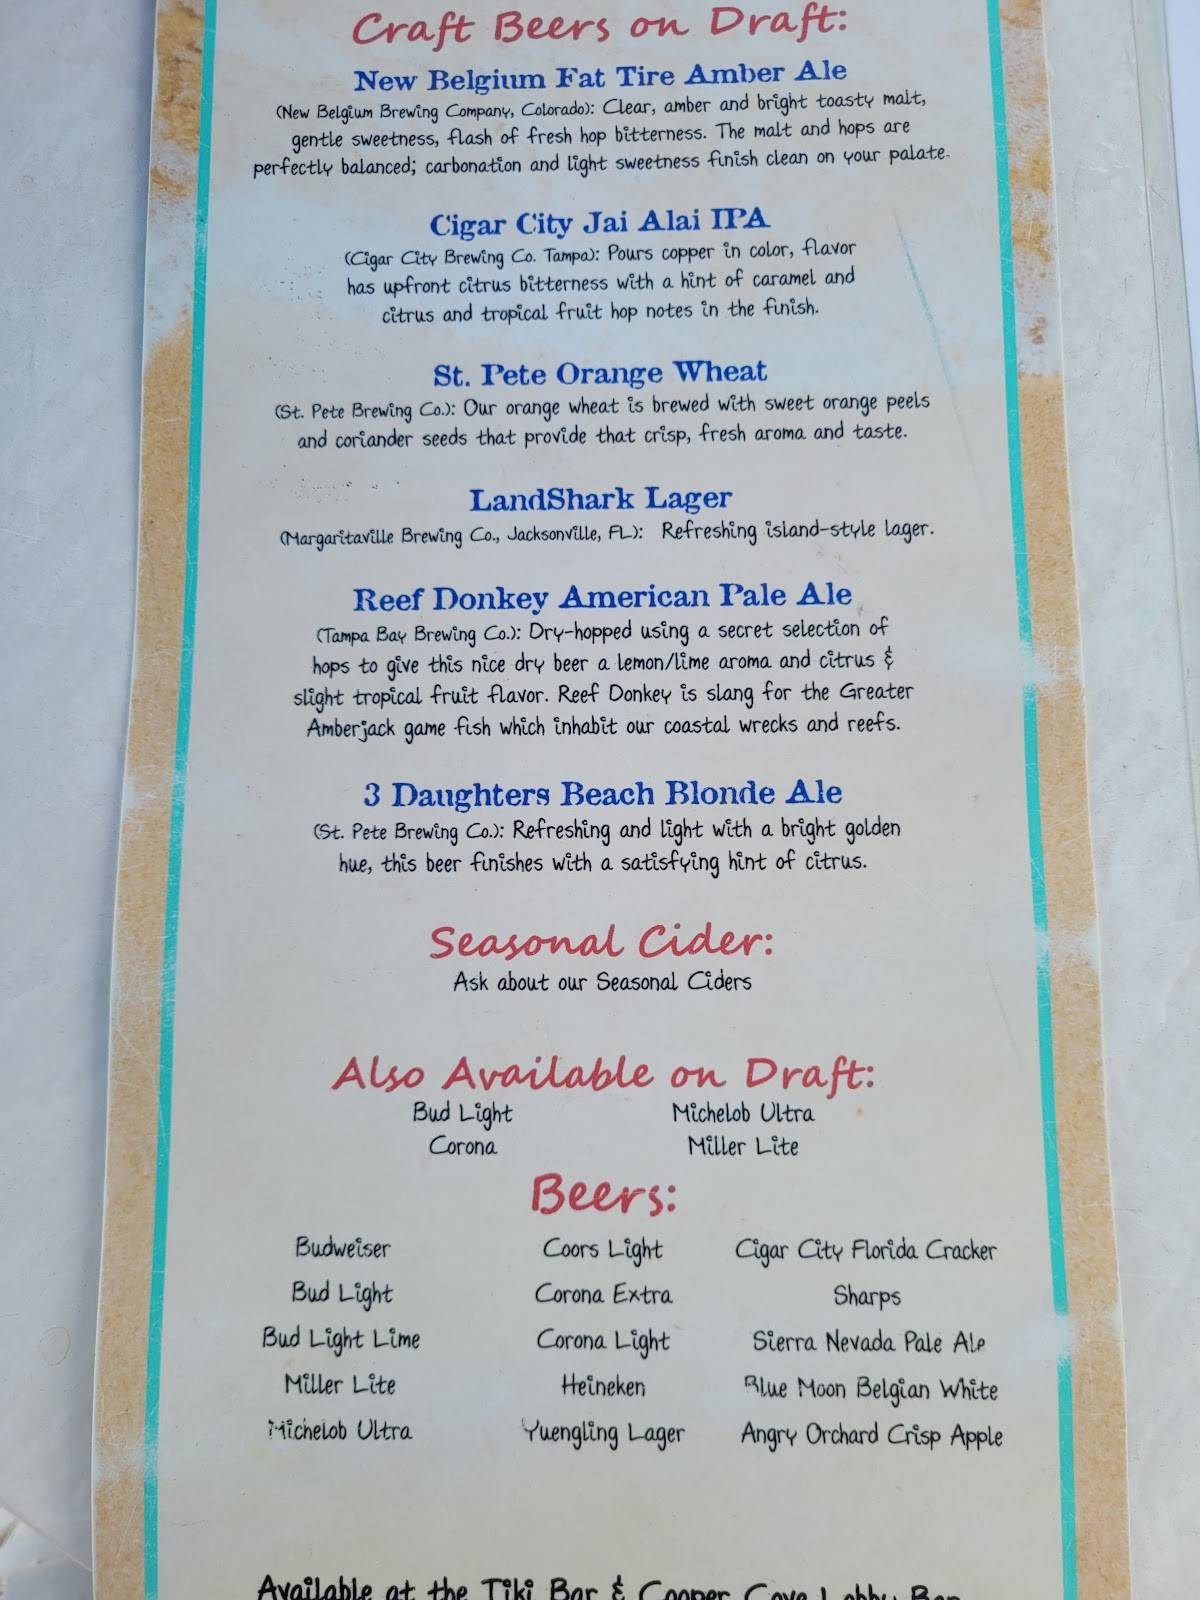 Craft Beers on Draft:
New Belgium Fat Tire Amber Ale
(New Belgium Brewing Company, Colorado): Clear, amber and bright toasty malt,
gentle sweetness, flash of fresh hop bitterness. The malt and hops are
perfectly balanced; carbonation and light sweetness finish clean on your palate.
Cigar City Jai Alai IPA
(Cigar City Brewing Co. Tampa): Pours copper in color, flavor
has upfront citrus bitterness with a hint of caramel and
citrus and tropical fruit hop notes in the finish.
St. Pete Orange Wheat
(St. Pete Brewing Co.): Our orange wheat is brewed with sweet orange peels
and coriander seeds that provide that crisp, fresh aroma and taste.
LandShark Lager
(Margaritaville Brewing Co., Jacksonville, FL): Refreshing island-style lager.
Reef Donkey American Pale Ale
(Tampa Bay Brewing Co.): Dry-hopped using a secret selection of
hops to give this nice dry beer a lemon/lime aroma and citrus &
slight tropical fruit flavor. Reef Donkey is slang for the Greater
Amberjack game fish which inhabit our coastal wrecks and reefs.
3 Daughters Beach Blonde Ale
(St. Pete Brewing Co.): Refreshing and light with a bright golden
hue, this beer finishes with a satisfying hint of citrus.
Seasonal Cider:
Ask about our Seasonal Ciders
Also Available on Draft:
Bud Light Michelob Ultra
Corona Miller Lite
Beers:
Budweiser Coors Light Cigar City Florida Cracker
Bud Light Corona Extra Sharps
Bud Light Lime Corona Light Sierra Nevada Pale Ale
Miller Lite Heineken Blue Moon Belgian White
Michelob Ultra Yuengling Lager Angry Orchard Crisp Apple
Available at the Tiki Bar & Cooper Cove Lobby Bar